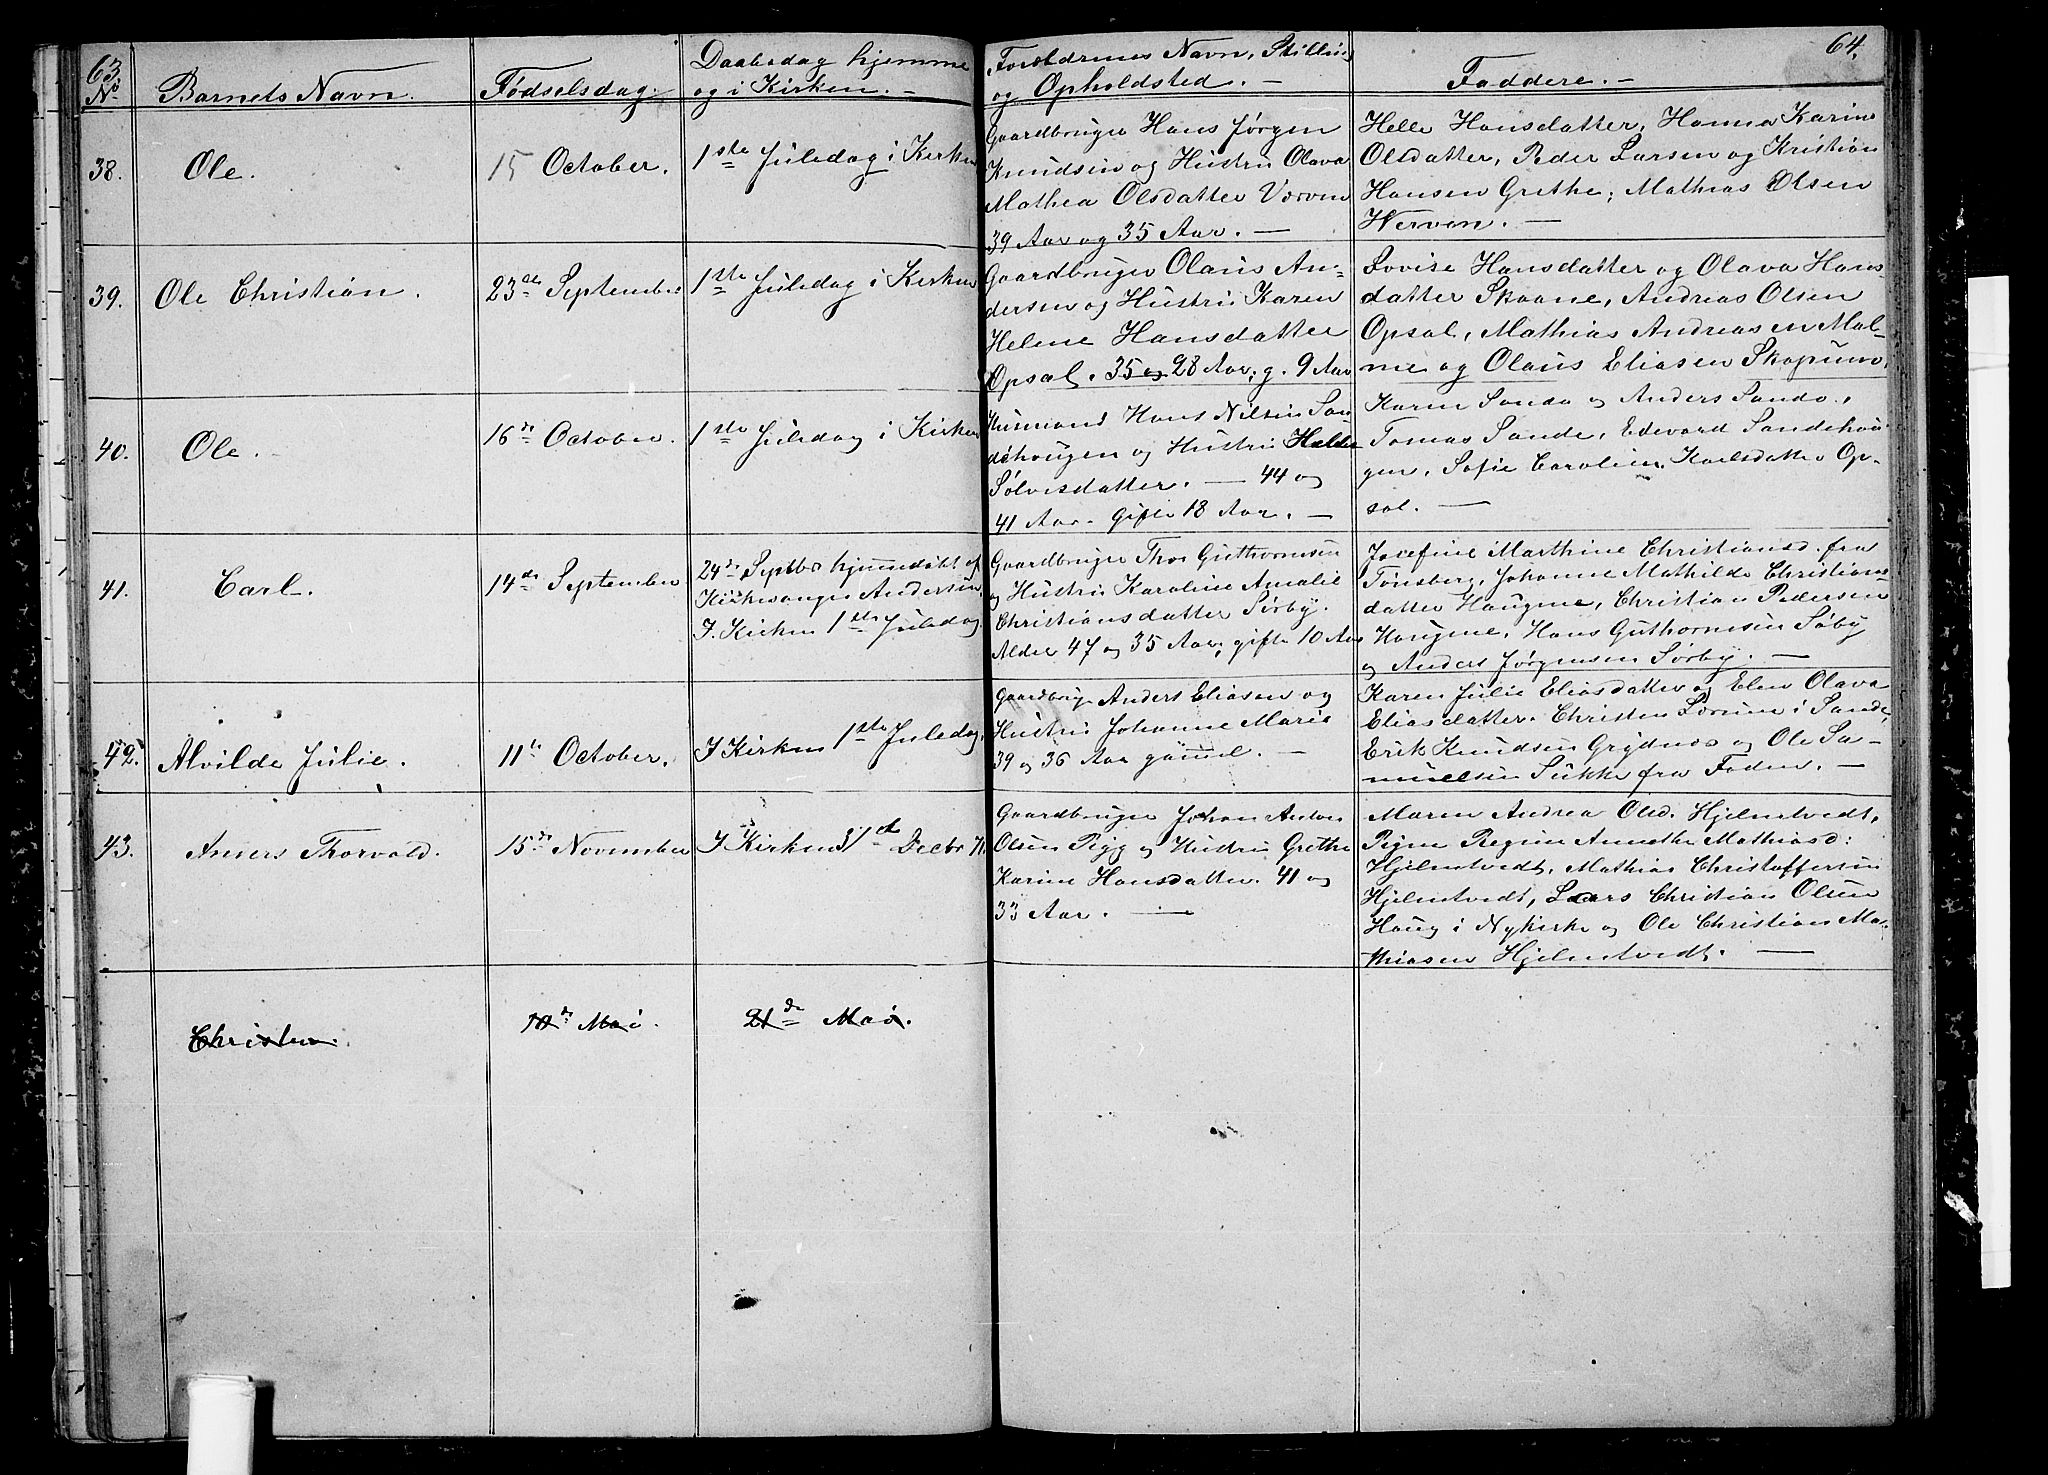 63.
64.
No
Barnets Navn.
Fødselsdag.
Daabsdag hjemme
og i Kirken. –
Forældrenes Navn, Stilling
og Opholdsted. –
Faddere. –
38.
Ole.
15 October.
1ste Juledag i Kirken
Gaardbruger Hans Jørgen
Knudsen og Hustru Olava
Mathea Olsdatter Værven
39 Aar og 35 Aar. –
Helle Hansdatter, Hanna Karine
Olsdatter, Peder Larsen og Kristian
Hansen Grethe; Mathias Olsen
Werven. –
39.
Ole Christian.
23de September
1ste Juledag i Kirken
Gaardbruger Olaus An-
dersen og Hustru Karen
Helene Hansdatter
Opsal. 35 og 28 Aar; g. 9 Aar
Lovise Hansdatter og Olava Hans-
datter Skaane, Andreas Olsen
Opsal, Mathias Andreasen Mal-
me og Olaus Eliasen Skopum.
40.
Ole.
16de October.
1ste Juledag i Kirken
Husmand Hans Nilsen San-
dehougen og Hustru Helde
Sølvesdatter. – 44 og
41 Aar. gifte 18 Aar. –
Karen Sande og Anders Sande,
Tomas Sande, Edvard Sandehou-
gen, Sofie Caroline Karlsdatter Op-
sal. –
41.
Carl.
14de September
24de Septbr hjemmedøbt af
Kirkesanger Andersen.
I Kirken 1ste Juledag.
Gaardbruger Thor Guthormsen
og Hustru Karoline Amalie
Christiansdatter Sørby.
Alder 47 og 35 Aar; gifte 10 Aar
Josefine Marthine Christiansd. fra
Tønsberg, Johanne Mathilde Christians-
datter Haugene, Christian Pedersen
Haugene, Hans Guthormsen Søby
og Anders Jørgensen Sørby. –
42.
Alvilde Julie.
11te October.
I Kirken 1ste Juledag.
Gaardbrug. Anders Eliasen og
Hustru Johanne Marie
39 og 36 Aar gammel. –
Karen Julie Eliasdatter og Elen Olava
Eliasdatter. Christen Lorum i Sande,
Erik Knudsen Grydnes og Ole Sa-
muelsen Sukke fra Foden. –
43.
Anners Thorvald.
15de November
I Kirken 31te Decbr 71
Gaardbruger Johan Anton
Olsen Pigg og Hustru Grethe
Karine Hansdatter. 41 og
33 Aar. –
Maren Andrea Olsd. Hjelmtvedt,
Pigne Regine Annethe Mathiasd:
Hjelmtvedt, Mathias Christoffersen
Hjelmtvedt, Lars Christian Olsen
Haug i Nykirke og Ole Christian Ma-
thiasen Hjelmtvedt. –
Christen.
10de Mai.
21de Mai.